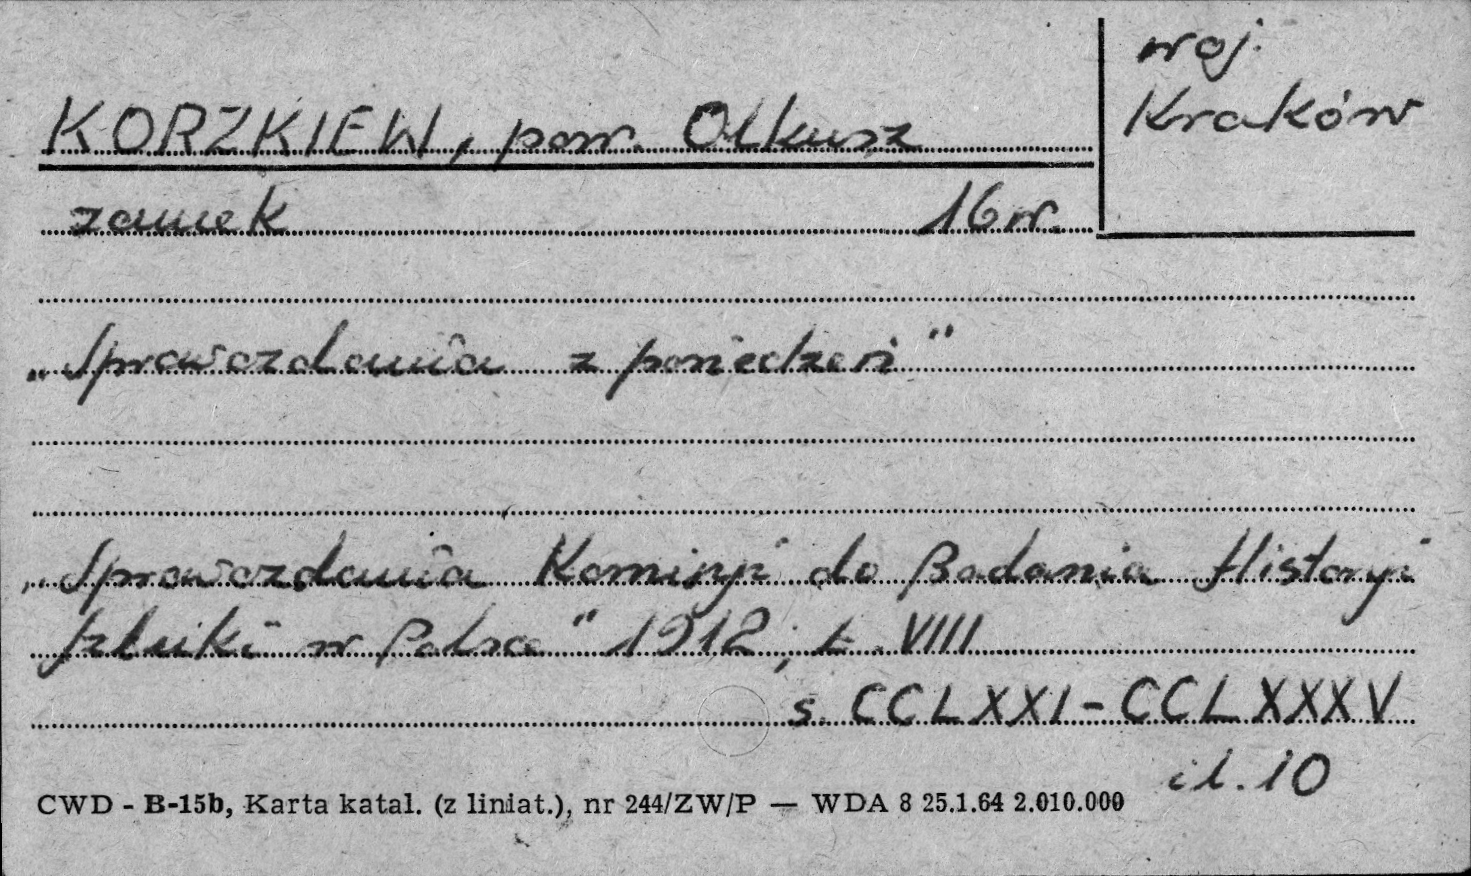 woj.
Kraków
KORZKIEW, pow. Olkusz
zamek 16 w.
„Sprawozdania z posiedzeń"
„Sprawozdania Komisyi do Badania Historyi
Sztuki w Polsce" 1912, t. VIII
s. CCLXXI-CCLXXXV
il. 10
CWD - B-15b, Karta katal. (z liniat.), nr 244/ZW/P — WDA 8 25.1.64 2.010.000